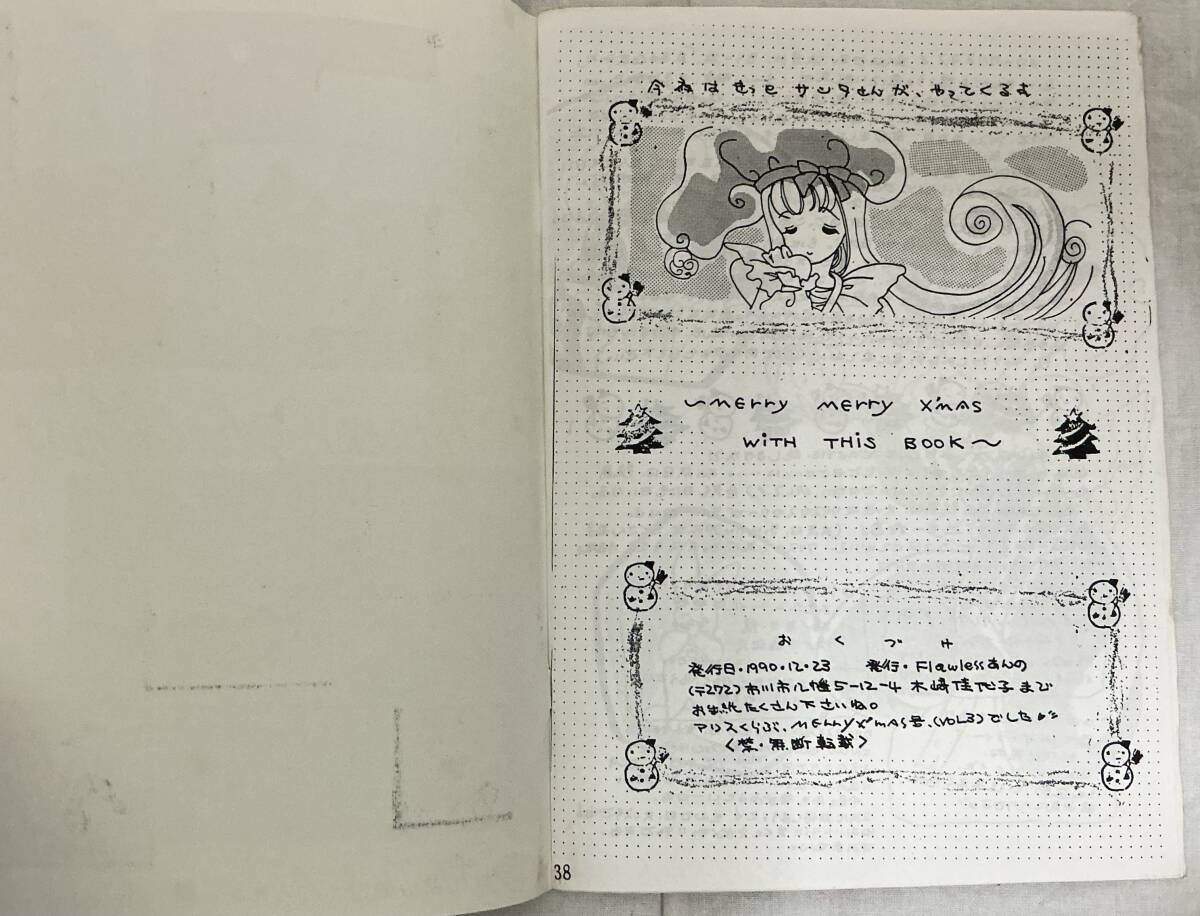 今夜はきっと サンタさんが、やってくるす
～MErry merry X'mAS
WiTH THiS BOOK～
おくづけ
発行日・1990・12・23 発行・Flawlessあんの
(〒272) 市川市八幡5-12-4 木崎佳代子まで
お手紙たくさん下さいね。
アリスくらぶ、MErry X'mAS号、(VOL3)でした
〈禁・無断転載〉
38